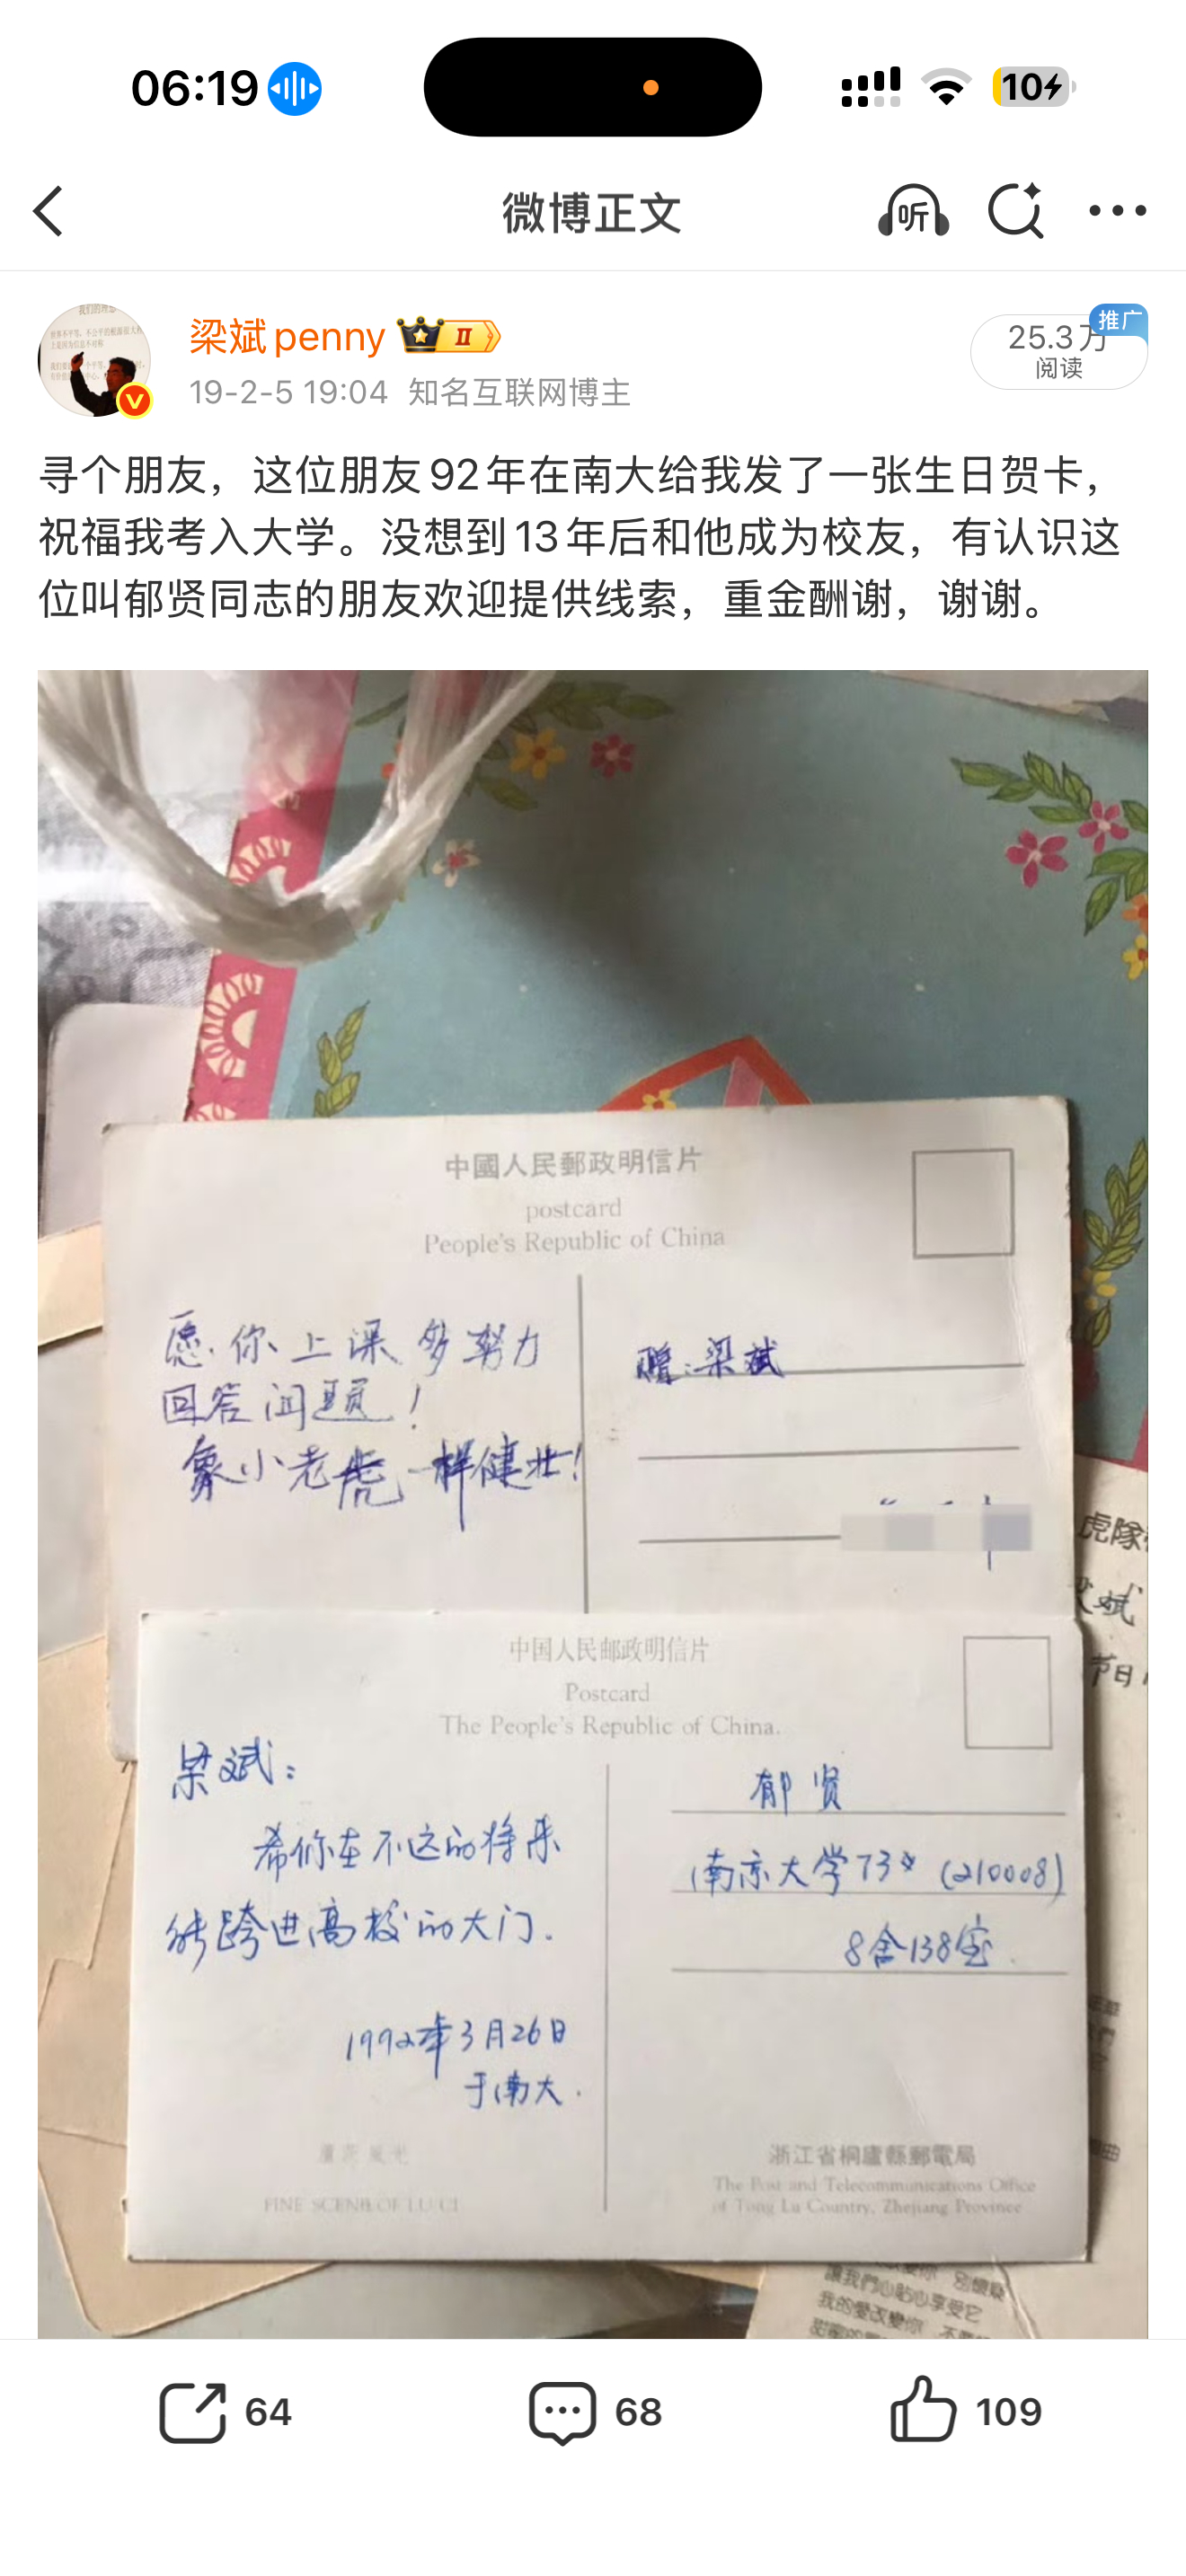 06:19
10
微博正文
听
我们的理想
梁斌penny
II
推广
25.3万
阅读
19-2-5 19:04 知名互联网博主
寻个朋友，这位朋友92年在南大给我发了一张生日贺卡，
祝福我考入大学。没想到13年后和他成为校友，有认识这
位叫郁贤同志的朋友欢迎提供线索，重金酬谢，谢谢。
中國人民郵政明信片
postcard
People's Republic of China
愿你上课多努力
回答问题！
象小老虎一样健壮！
赠：梁斌
虎隊
斌
节日
中国人民邮政明信片
Postcard
The People's Republic of China.
梁斌：
希你在不远的将来
能跨进高校的大门.
1992年3月26日
于南大.
郁贤
南京大学73# (210008)
8舍138室.
FINE SCENE OF LU CI
浙江省桐廬縣郵電局
The Post and Telecommunications Office
of Tong Lu Country, Zhejiang Province
讓我們心貼心享受它
我的愛改變你
64
68
109